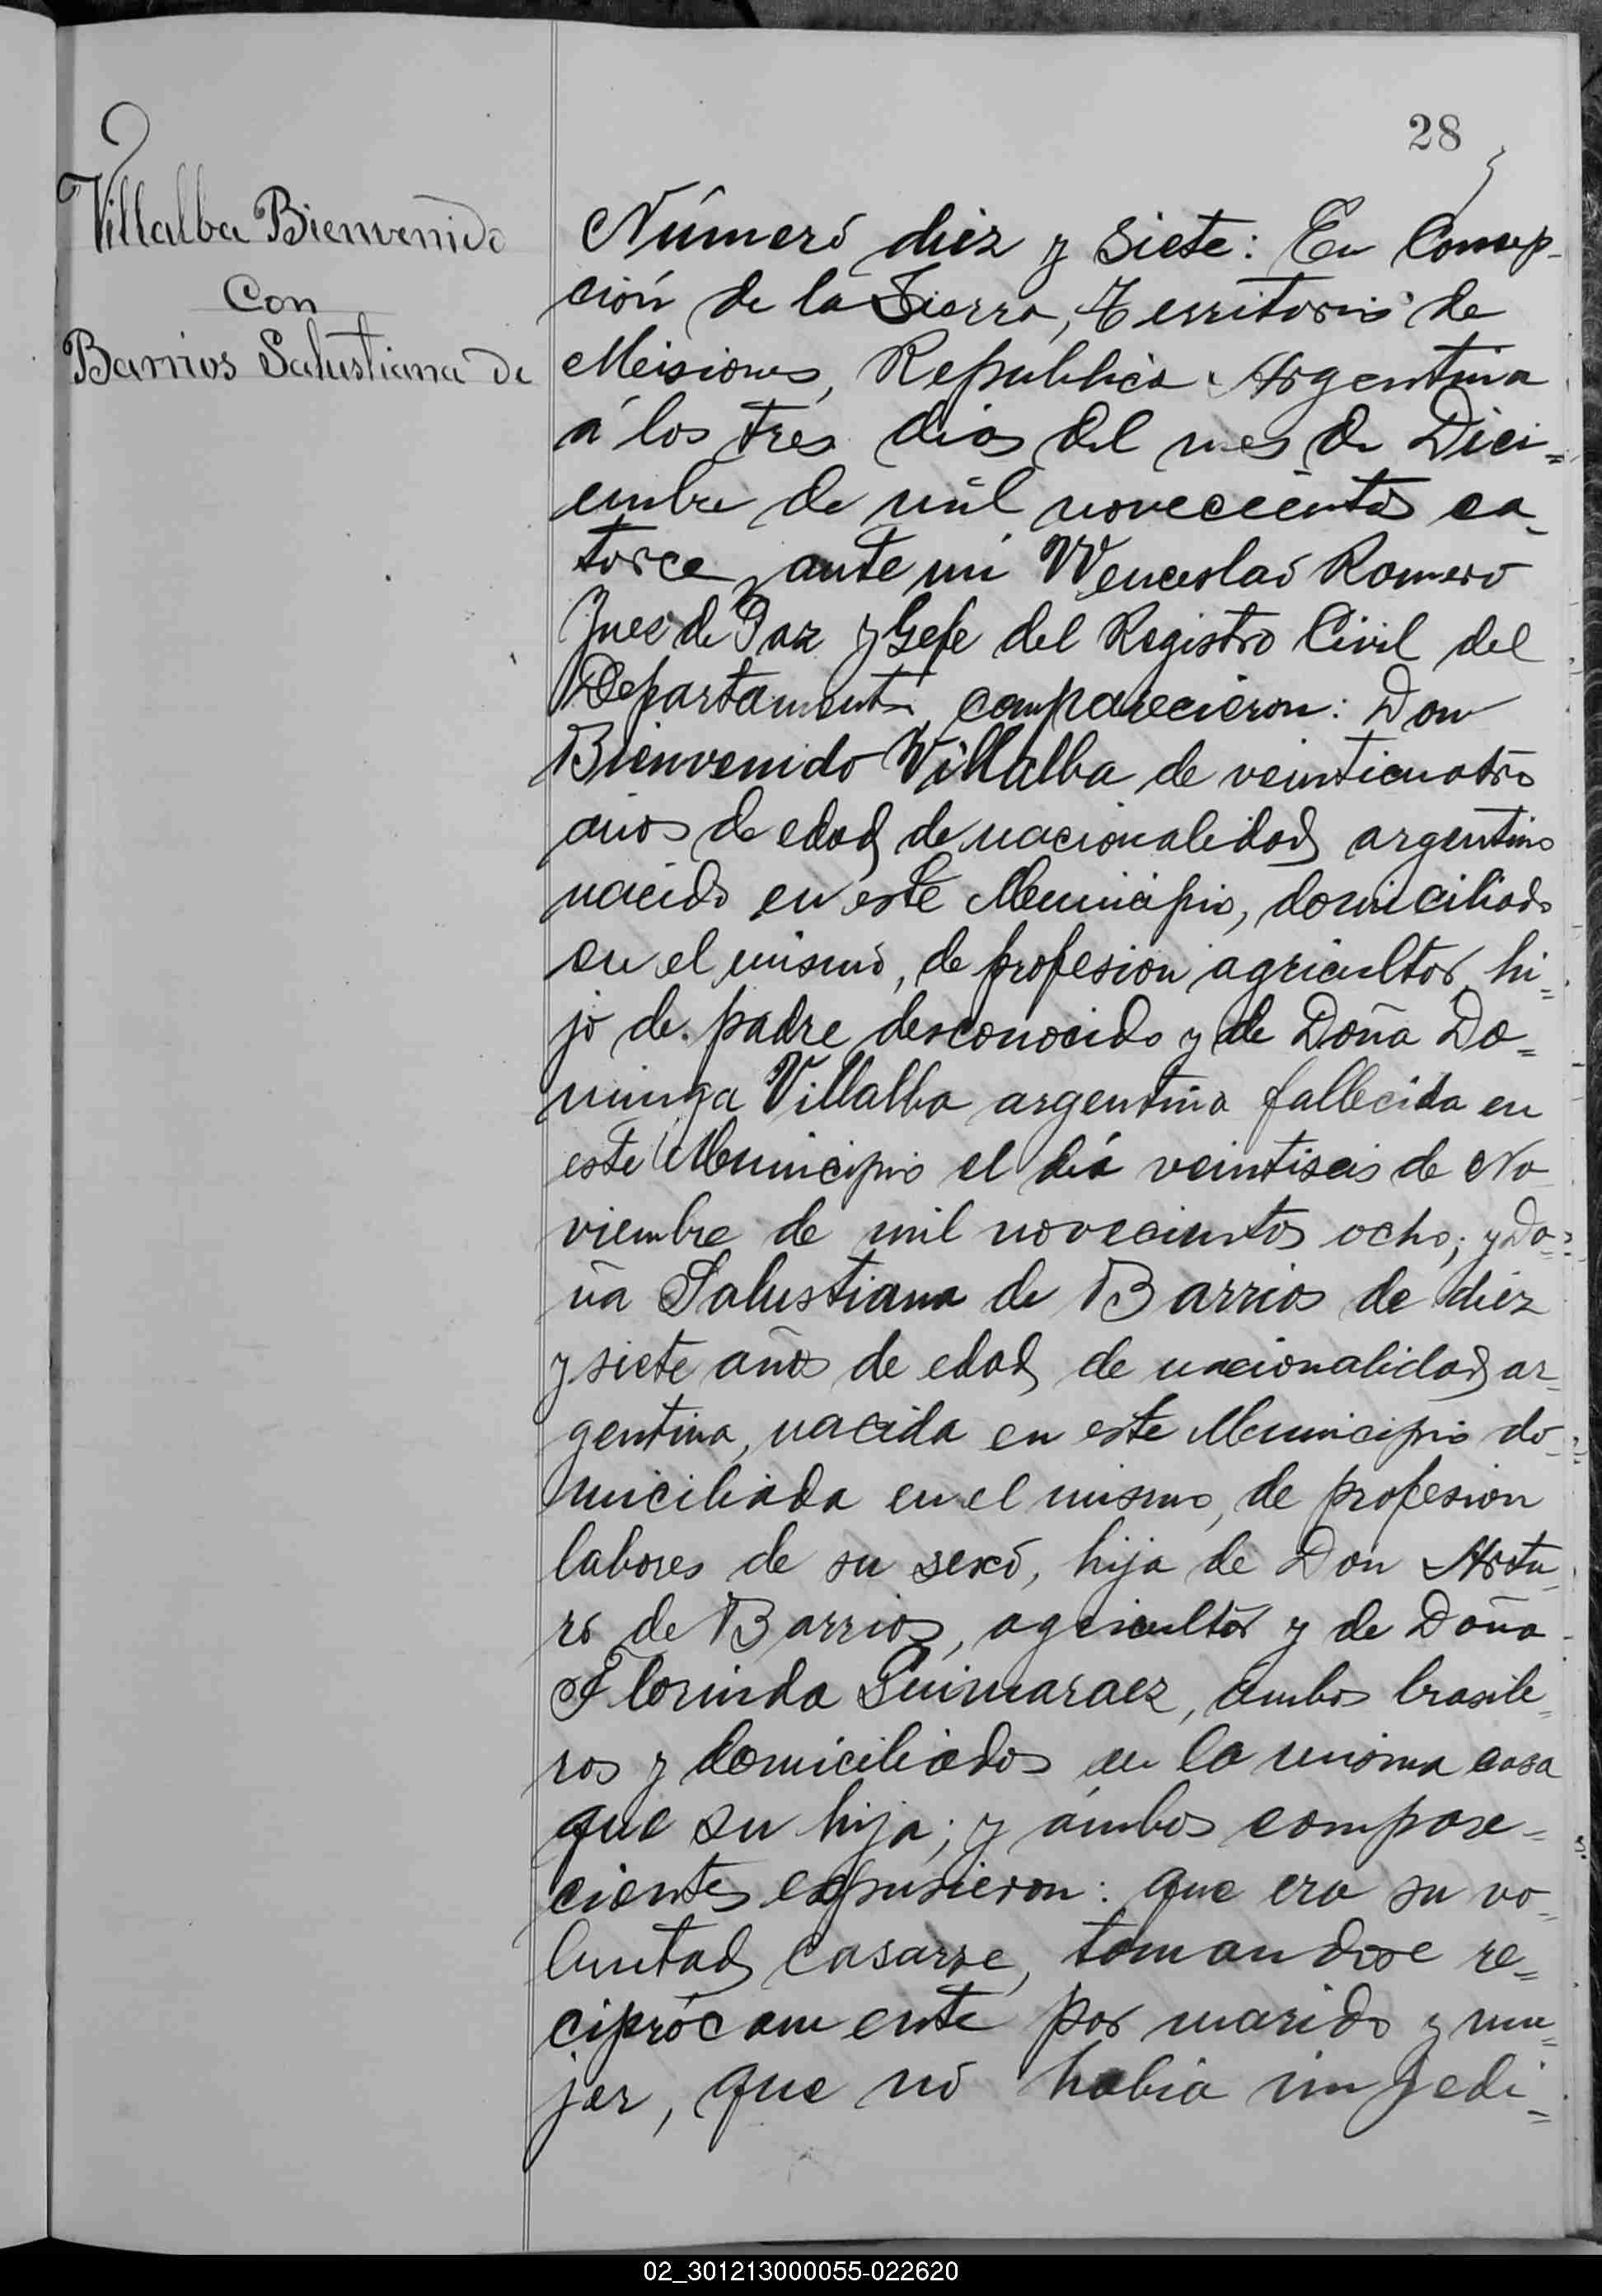 28
Villalba Bienvenido
Con
Barrios Salustiana de
Número diez y siete: En Concep-
ción de la Sierra, Territorio de
Misiones, Republica Argentina
á los tres dias del mes de Dici=
embre de mil novecientos ca-
torce, ante mi Wenceslao Romero
Juez de Paz y Gefe del Registro Civil del
Departamento, comparecieron: Don
Bienvenido Villalba de veinticuatro
años de edad, de nacionalidad argentino
nacido en este Municipio, domiciliado
en el mismo, de profesion agricultor, hi=
jo de padre desconocido y de Doña Do=
minga Villalba argentina fallecida en
este Municipio el dia veintiseis de No
viembre de mil novecientos ocho; y Do=
ña Salustiana de Barrios de diez
y siete años de edad, de nacionalidad ar-
gentina, nacida en este Municipio do-
miciliada en el mismo, de profesion
labores de su sexo, hija de Don Artu-
ro de Barrios, agricultor y de Doña
Florinda Guimaraez, ambos brasile=
ros y domiciliados en la misma casa
que su hija; y ambos compare=
cientes expusieron: que era su vo-
luntad casarse, tomandose re=
ciprocamente por marido y mu=
jer, que no habia impedi=
02_301213000055-022620